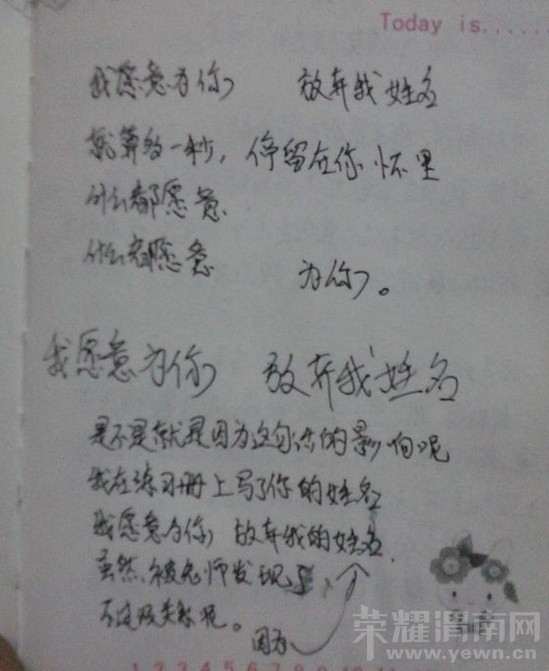 Today is......
我愿意为你 放弃我姓名
就算多一秒，停留在你怀里
什么都愿意
什么都愿意 为你。
我愿意为你 放弃我姓名
是不是就是因为这句你的影响呢
我在练习册上写了你的姓名
我愿意为你，放弃我的姓名.
虽然被老师发现了
不过没关系呢。 因为
荣耀渭南网
www.yewn.cn
1 2 3 4 5 6 7 8 9 10 11